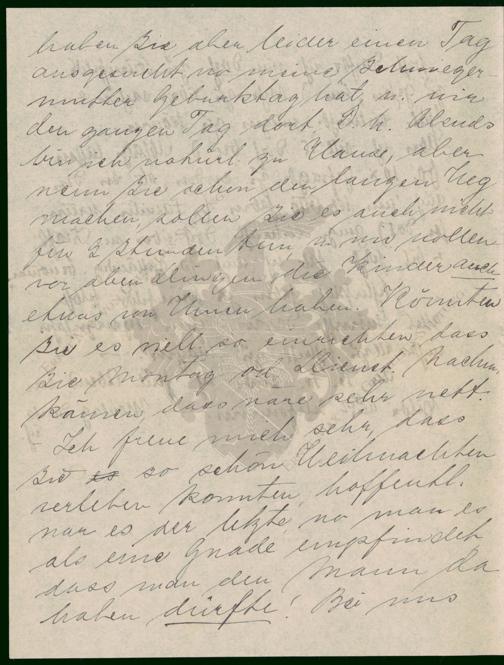 haben Sie aber leider einen Tag
ausgesucht wo meine Schwieger
mutter Geburtstag hat u. wir
den ganzen Tag dort d. h. Abends
bin ich natürl. zu Hause, aber
wenn Sie schon den langen Weg
machen, sollen Sie es auch nicht
für 2 Stunden tun u. wir wollen
vor allen Dingen die Kinder auch
etwas von Ihnen haben. Könnten
Sie es viell. so einrichten dass
Sie Montag od. Dienst. Nachm.
kämen, dass wäre sehr nett.
Ich freue mich sehr, dass
Sie so schön Weihnachten
verleben konnten, hoffentl.
war es der letzte, wo man es
als eine Gnade empfindet
dass man den Mann da
haben dürfte! Bei uns